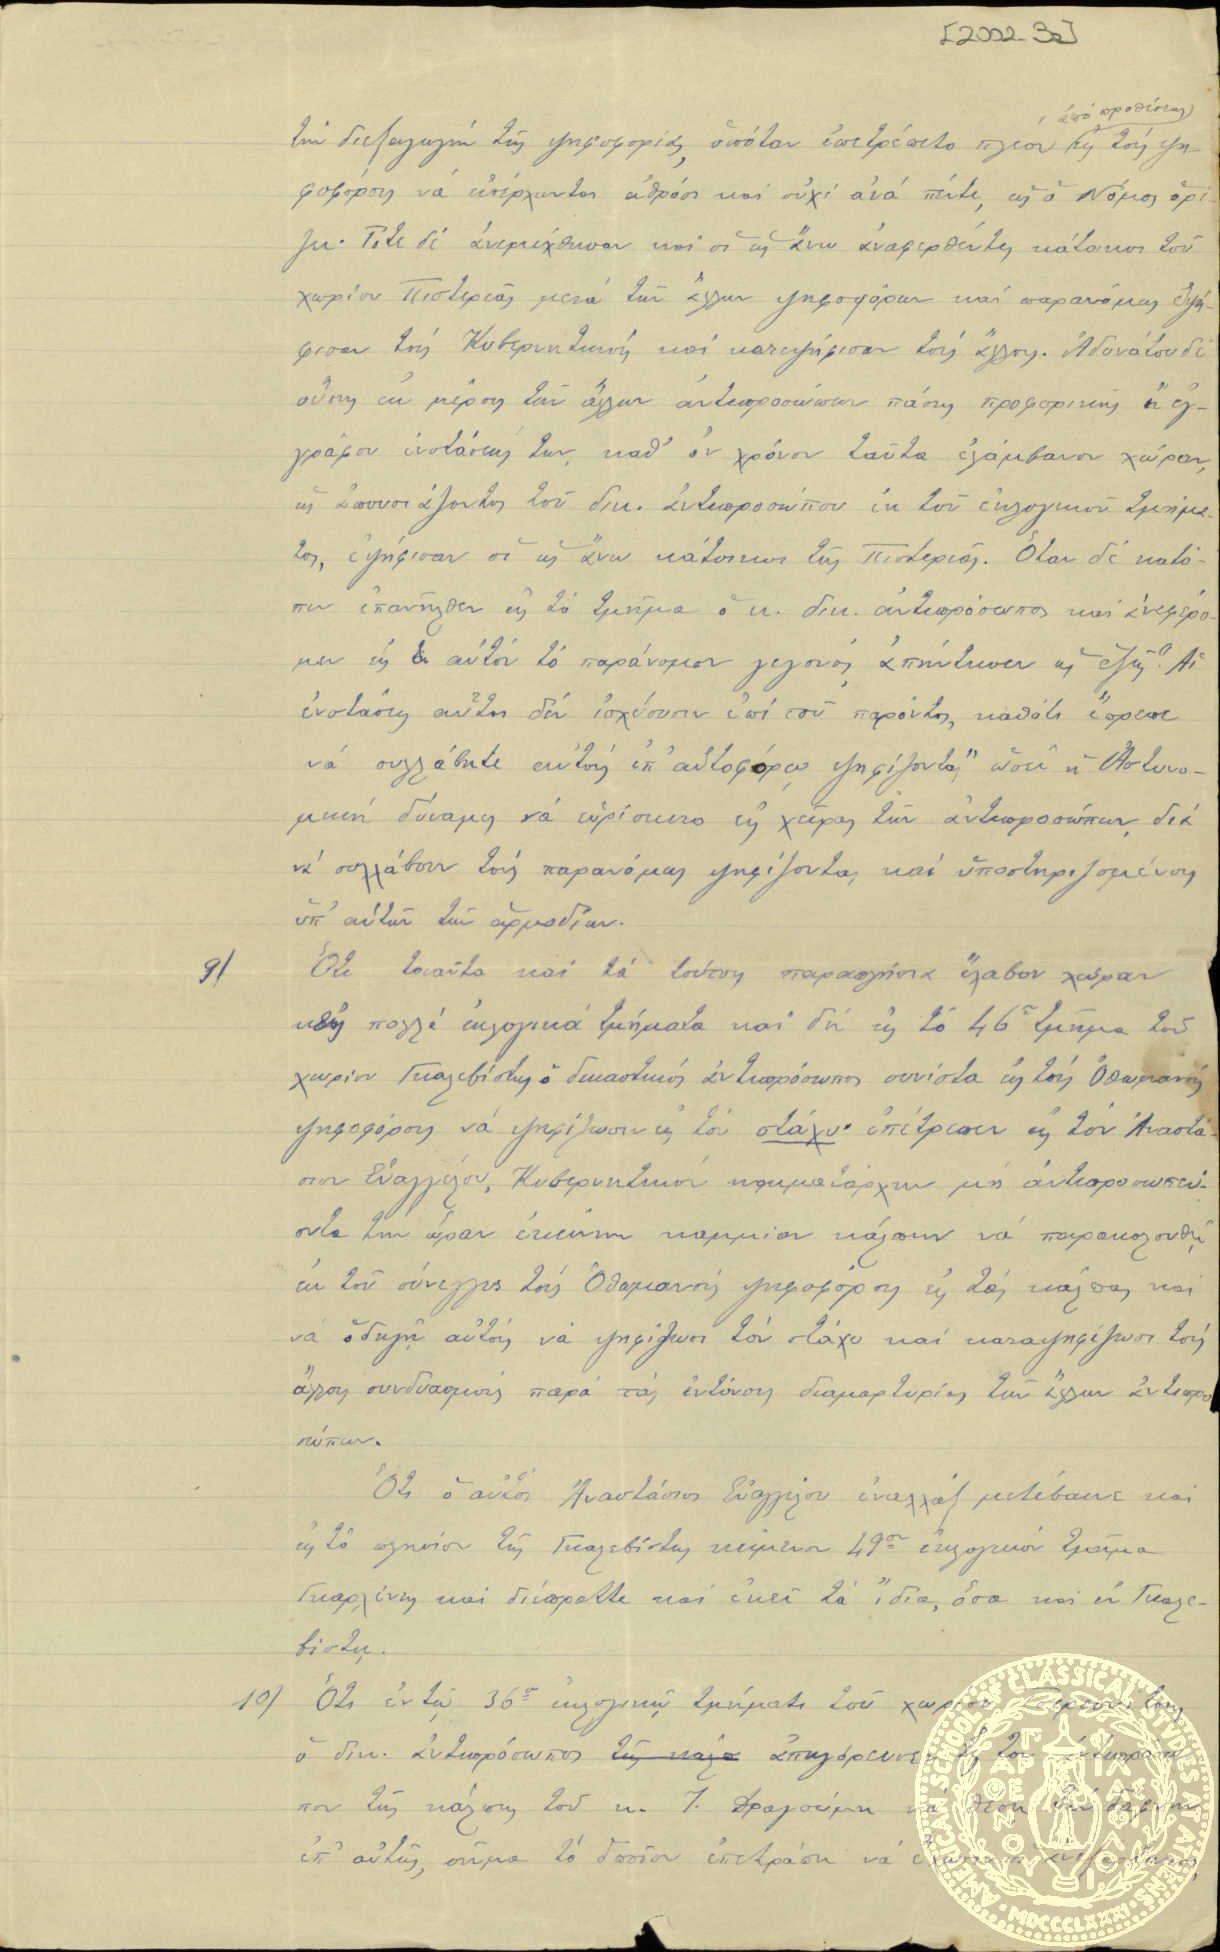 [2002-32]
ἀπό προθέσεως
τήν διεξαγωγήν τῆς ψηφοφορίας, ὁπόταν ἐπετρέπετο πλέον εἰς τούς ψη-
φοφόρους νά εἰσέρχωνται ἀθρόοι καί οὐχί ἀνά πέντε, ὡς ὁ Νόμος ὁρί-
ζει. Τότε δέ ἀνεμίχθησαν καί οἱ ὡς ἄνω ἀναφερθέντες κάτοικοι τοῦ
χωρίου Πιστεριᾶς μετά τῶν ἄλλων ψηφοφόρων καί παρανόμως ἐψή-
φισαν τούς Κυβερνητικούς καί κατεψήφισαν τούς ἄλλους. Ἀδυνάτου δέ
οὔσης ἐκ μέρους τῶν ἄλλων ἀντιπροσώπων πάσης προφορικῆς ἤ ἐγ-
γράφου ἐνστάσεώς των, καθ' ὅν χρόνον ταῦτα ἐλάμβανον χώραν,
ὡς ἀπουσιάζοντος τοῦ δικ. ἀντιπροσώπου ἐκ τοῦ ἐκλογικοῦ τμήμα-
τος, ἐψήφισαν οἱ ὡς ἄνω κάτοικοι τῆς Πιστεριᾶς. Ὅταν δέ κατό-
πιν ἐπανῆλθεν εἰς τό τμῆμα ὁ κ. δικ. ἀντιπρόσωπος καί ἀνεφέρο-
μεν εἰς αὐτόν τό παράνομον γεγονός, ἀπήντησεν ὡς ἑξῆς: "Αἱ
ἐνστάσεις αὗται δέν ἰσχύουσιν ἐπί τοῦ παρόντος, καθότι ἔπρεπε
νά συλλάβητε αὐτούς ἐπ' αὐτοφόρῳ ψηφίζοντας" ὡσεί ἡ Ἀστυνο-
μική δύναμις νά εὑρίσκετο εἰς χεῖρας τῶν ἀντιπροσώπων, διά
νά συλλάβουν τούς παρανόμως ψηφίζοντας καί ὑποστηριζομένους
ὑπ' αὐτῶν τῶν ἁρμοδίων.
9/ Ὅτι τοιαῦτα καί τά τούτοις παραπλήσια ἔλαβον χώραν
εἰς πολλά ἐκλογικά τμήματα καί δή εἰς τό 46ον τμῆμα τοῦ
χωρίου Γκαλεβίστης ὁ δικαστικός ἀντιπρόσωπος συνίστα εἰς τούς Ὀθωμανούς
ψηφοφόρους νά ψηφίζωσιν εἰς τόν στάχυ· ἐπέτρεπεν εἰς τόν Ἀναστά-
σιον Εὐαγγέλου, Κυβερνητικόν κομματάρχην μή ἀντιπροσωπεύ-
οντα τήν ὥραν ἐκείνην καμμίαν κάλπην νά παρακολουθῇ
ἐκ τοῦ σύνεγγυς τούς Ὀθωμανούς ψηφοφόρους εἰς τάς κάλπας καί
νά ὁδηγῇ αὐτούς νά ψηφίζωσι τόν στάχυ καί καταψηφίζωσι τούς
ἄλλους συνδυασμούς παρά τάς ἐντόνους διαμαρτυρίας τῶν ἄλλων ἀντιπρο-
σώπων.
Ὅτι ὁ αὐτός Ἀναστάσιος Εὐαγγέλου ἐναλλάξ μετέβαινε καί
εἰς τό πλησίον τῆς Γκαλεβίστης κείμενον 49ον ἐκλογικόν τμῆμα
Γκαρλένης καί διέπραττε καί ἐκεῖ τά ἴδια, ὅσα καί ἐν Γκαλε-
βίστῃ.
10/ Ὅτι ἐν τῷ 36ῳ ἐκλογικῷ τμήματι τοῦ χωρίου
ὁ δικ. ἀντιπρόσωπος τῆς καλπ ἀπηγόρευσεν εἰς τόν ἀντιπρόσω-
πον τῆς κάλπης τοῦ κ. Ἰ. Δραγούμη νά θέσῃ τήν δάφνην
ἐπ' αὐτῆς, σῆμα τό ὁποῖον ἐπετράπη νά
AMERICAN SCHOOL OF CLASSICAL STUDIES AT ATHENS
MDCCCLXXXI
ΠΑΡΘΕΝΟΥ ΦΙΑΛΑΣ